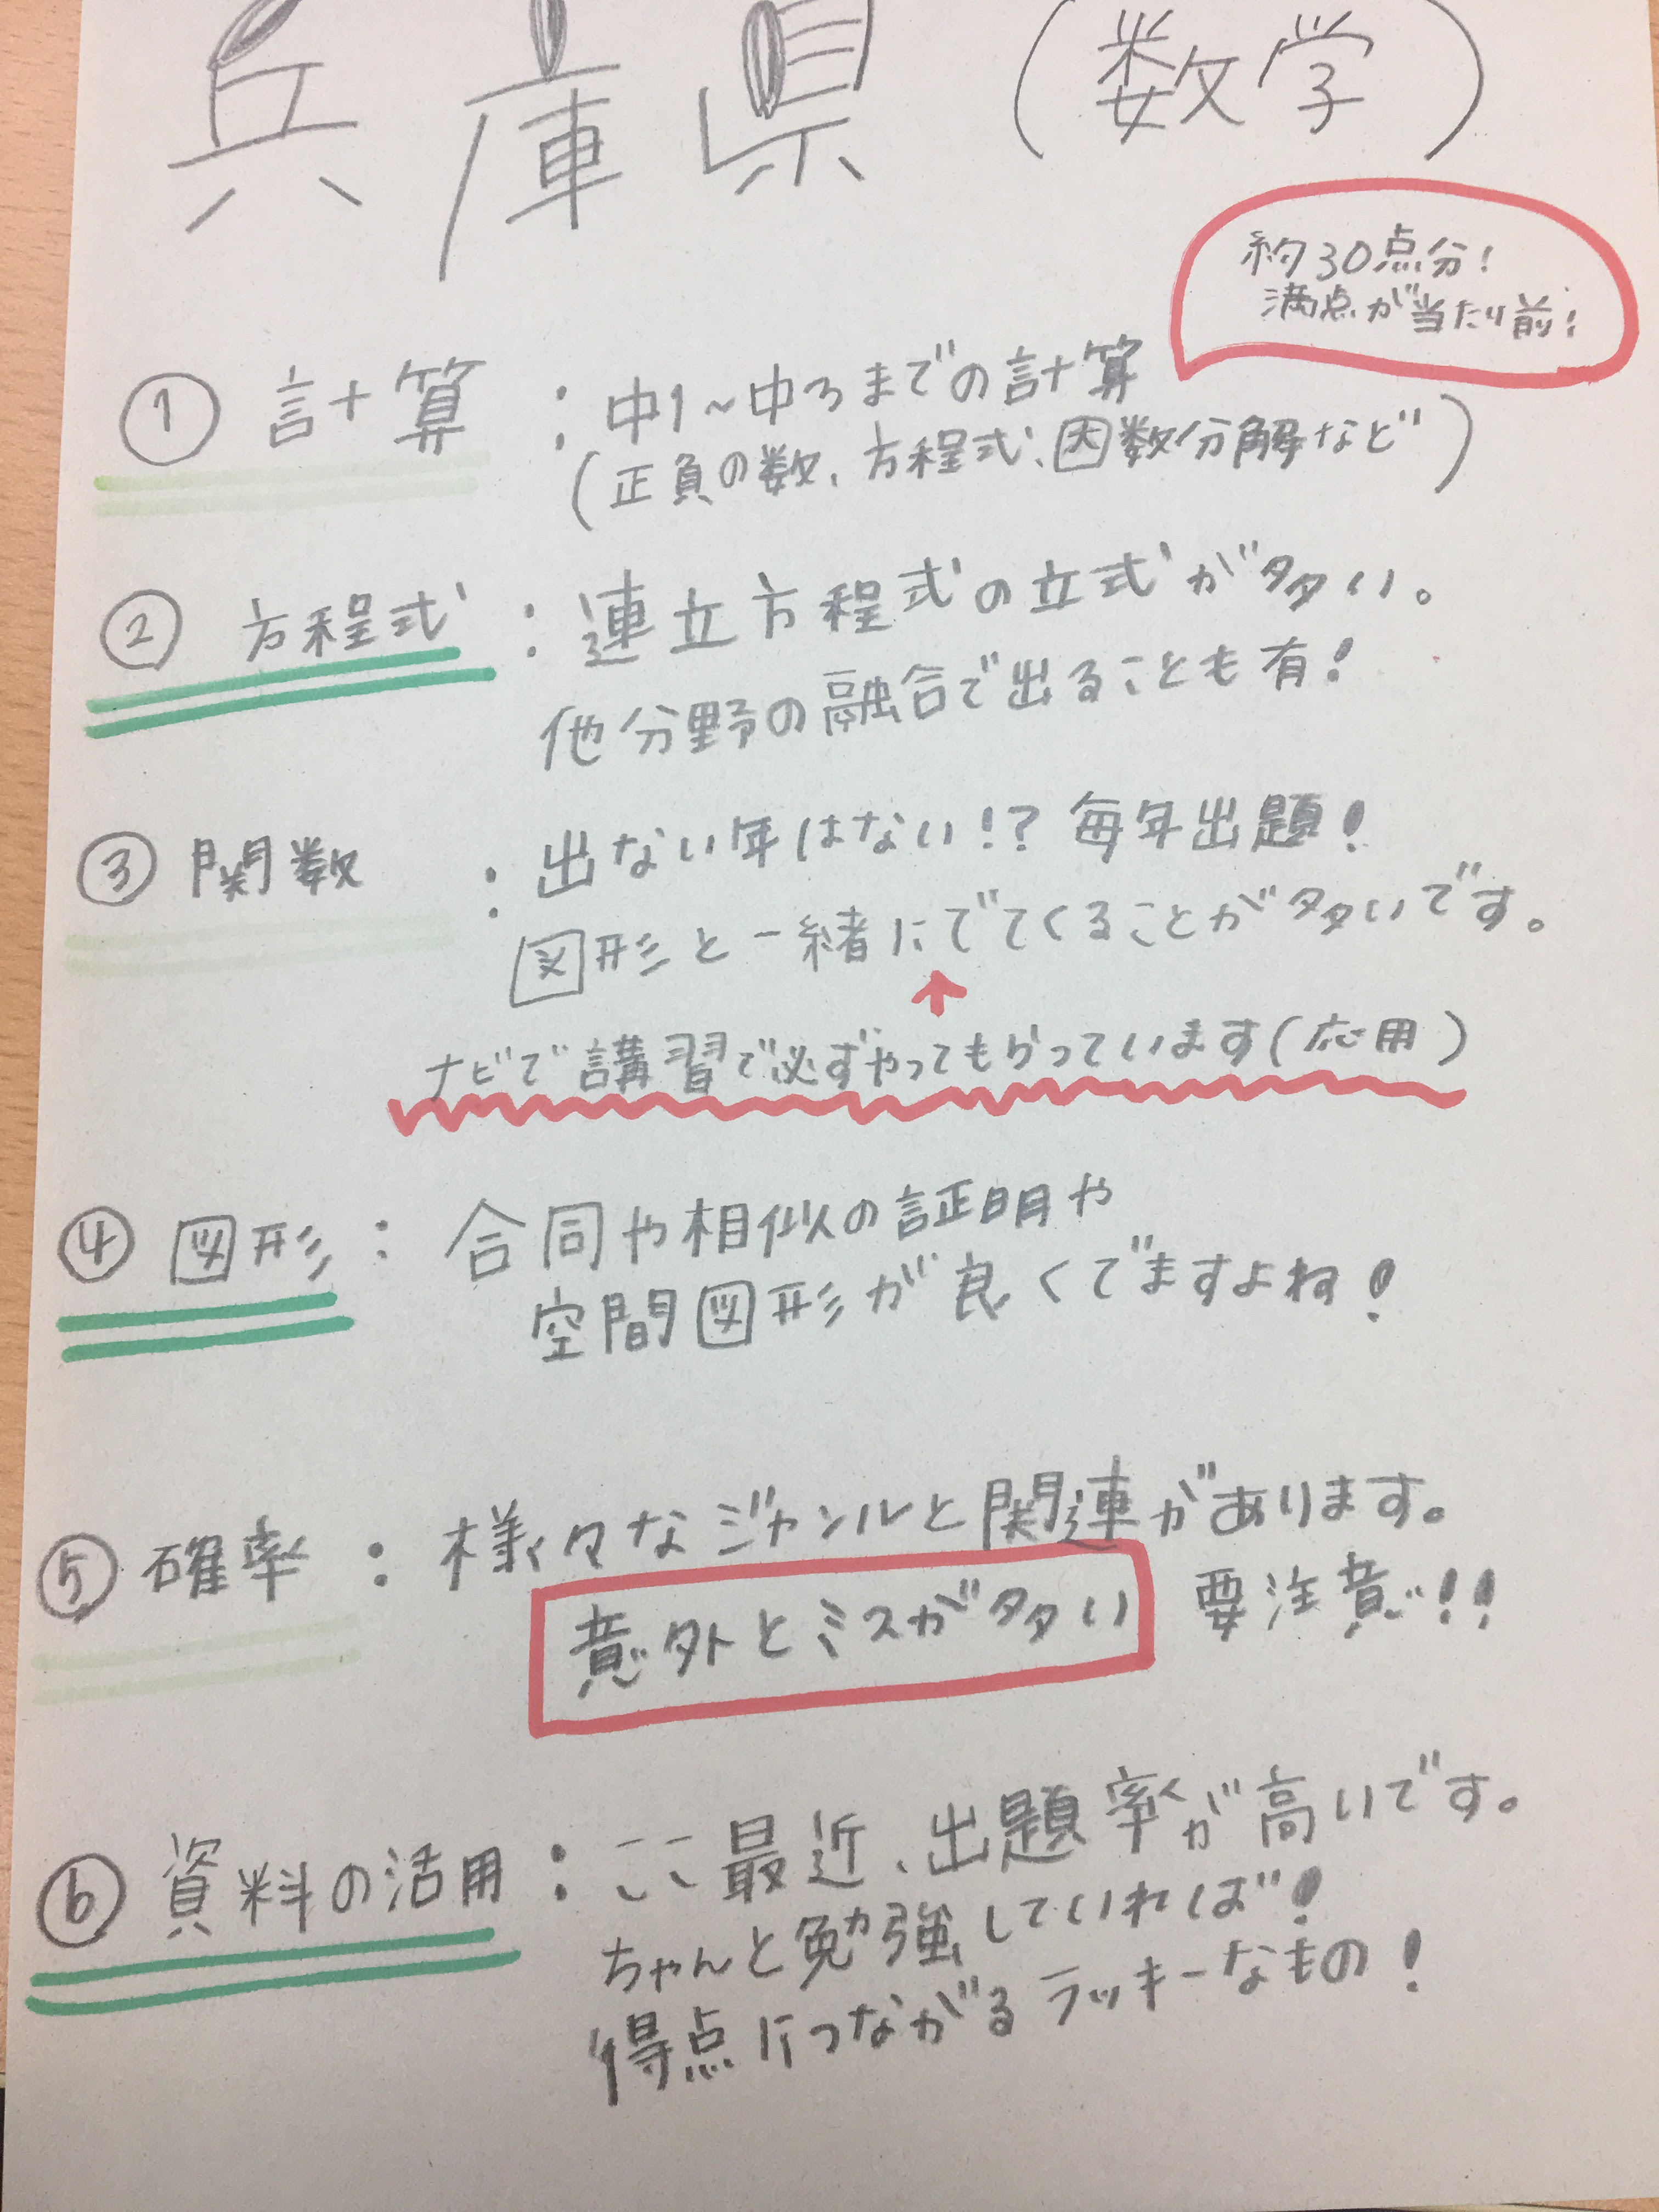 兵庫県（数学）
約30点分！
満点が当たり前！
① 計算：中1～中3までの計算
（正負の数、方程式、因数分解など）
② 方程式：連立方程式の立式が多い。
他分野の融合で出ることも有！
③ 関数：出ない年はない！？毎年出題！
図形と一緒にでてくることが多いです。
ナビで講習で必ずやってもらっています（応用）
④ 図形：合同や相似の証明や
空間図形が良くでますよね！
⑤ 確率：様々なジャンルと関連があります。
意外とミスが多い 要注意！！
⑥ 資料の活用：ここ最近、出題率が高いです。
ちゃんと勉強していれば！
得点につながるラッキーなもの！